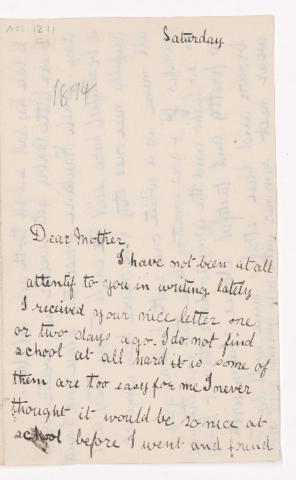 ACC 1211
Saturday
1894
Dear Mother,
I have not been at all
attentif to you in writing lately
I received your nice letter one
or two days ago. I do not find
school at all hard it is some of
them are too easy for me I never
thought it would be so nice at
school before I went and found